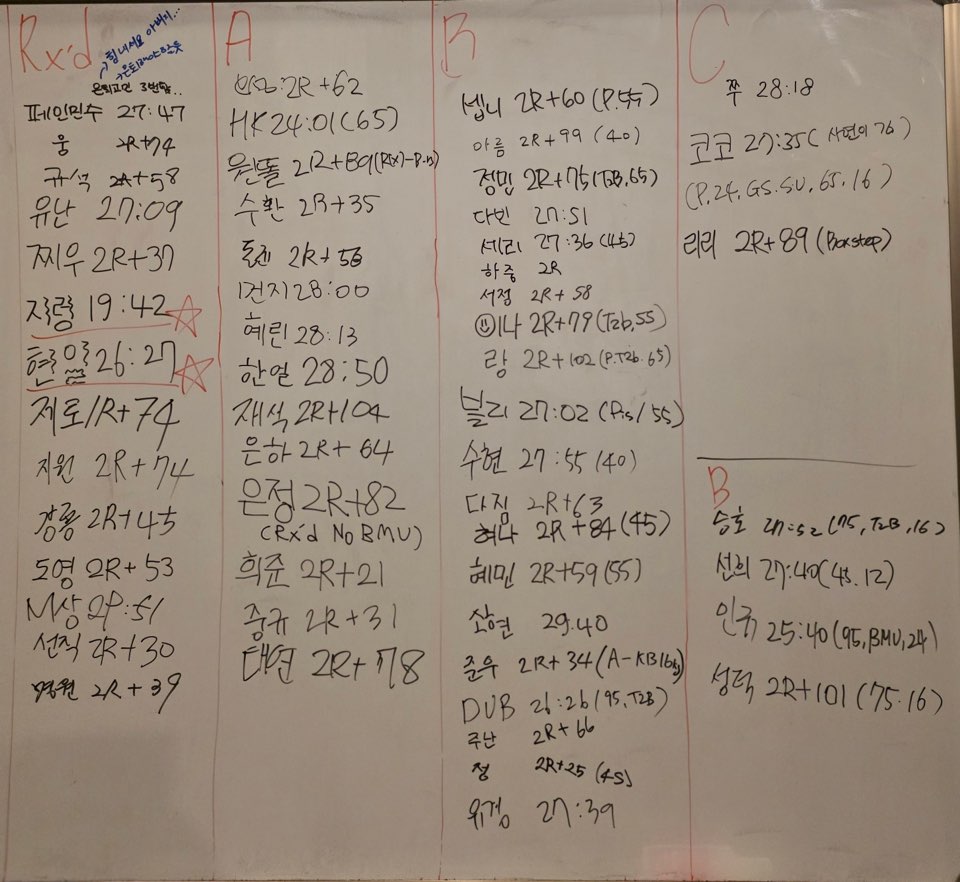 Rx'd
힘내세요 아버지...
은퇴고민 3번만..
페인민수 27:47
웅 2R+74
규석 2R+58
유난 27:09
찌우 2R+37
지령 19:42
현울 26:27
제로 1R+74
지원 2R+74
강룡 2R+45
도영 2R+53
M상 29:51
선직 2R+30
명원 2R+39
A
2R+62
HK 24:01(65)
원똘 2R+89
수환 2R+35
2R+56
건지 28:00
혜린 28:13
한얼 28:50
재석 2R+104
은하 2R+64
은정 2R+82
(Rx'd No BMU)
희준 2R+21
중규 2R+31
대연 2R+78
B
셉니 2R+60 (P.55)
아름 2R+99 (40)
정민 2R+75(T2B,65)
다빈 27:51
세리 27:36(45)
하중 2R
서정 2R+58
이나 2R+79(T2b,55)
랑 2R+102(P.T2b.65)
블리 27:02 (Pis/55)
수현 27:55(40)
다짐 2R+63
혀나 2R+84(45)
혜민 2R+59(55)
소현 29:40
준우 2R+34(A-KB16kg)
DUB 26:26(95,T2B)
주난 2R+66
정 2R+25 (45)
유정 27:39
C
쭈 28:18
코코 27:35(
(P,24,GS.SU,65,16)
리리 2R+89(Boxstep)
B
승호 27:52(75,T2B,16)
선희 27:40(45.12)
인규 25:40(95,BMU,24)
성덕 2R+101(75.16)